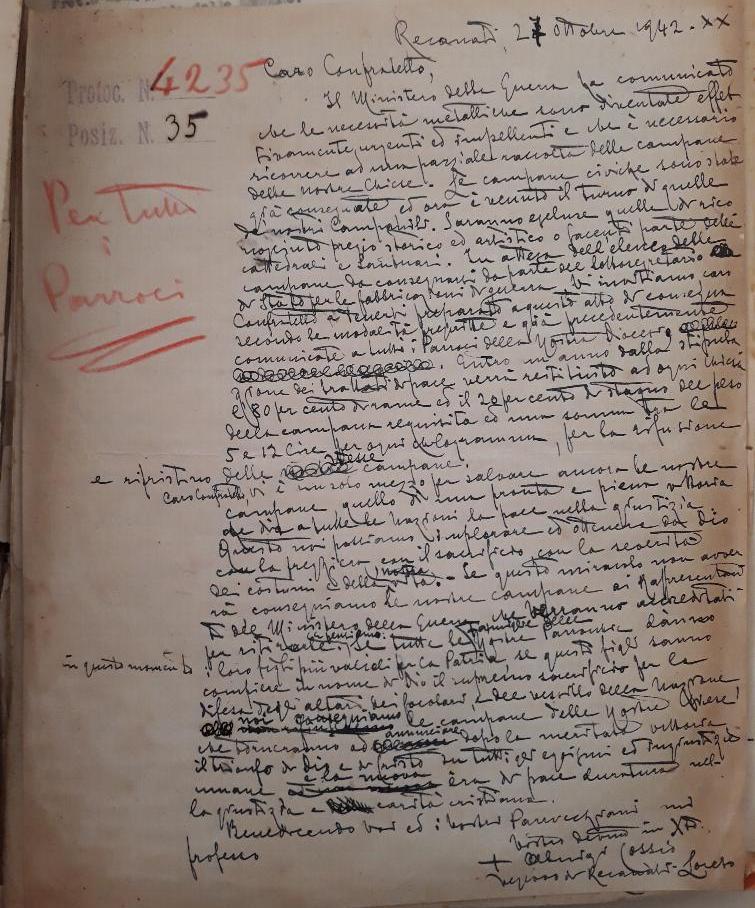 Recanati, 27 Ottobre 1942 - XX
Protoc. N. 4235
Posiz. N. 35
Per tutti
i
Parroci
Caro Confratello,
Il Ministero della Guerra fa comunicato
che le necessità metalliche sono diventate effet-
tivamente urgenti ed impellenti e che è necessario
ricorrere ad una parziale raccolta delle campane
delle nostre Chiese. Le campane civiche sono state
già consegnate ed ora è venuto il turno di quelle
de' nostri Campanili. Saranno escluse quelle di rico
nosciuto pregio storico ed artistico o facenti parte delle
cattedrali e Santuari. In attesa dell'elenco delle
campane da consegnarsi da parte del sottosegretario
di Stato per le fabbricazioni di guerra, Vi invitiamo caro
Confratello a tenervi preparato a questo atto di consegna
secondo le modalità prescritte e già precedentemente
comunicate a tutti i Parroci della Nostra Diocesi
Entro un anno dalla stipula
zione dei trattati di pace verrà restituito ad ogni Chiesa
l'80 per cento di rame ed il 20 per cento di stagno del peso
della campana requisita ed una somma tra le
5 e 12 Lire per ogni chilogramma, per la rifusione
e ripristino delle stesse campane.
Caro Confratello, vi è un solo mezzo per salvare ancora le nostre
campane, quello di una pronta e piena vittoria
che dia a tutte le Nazioni la pace nella giustizia.
Questo noi possiamo implorare ed ottenere da Dio
con la preghiera con il sacrificio, con la severità
dei costumi e della nostra vita. - Se questo miracolo non avver
rà consegniamo le nostre campane ai Rappresentan
ti del Ministero della Guerra che verranno accreditati
per ritirarle. Se tutte le famiglie delle Nostre Parrocchie danno
in questo momento i loro figli più validi per la Patria, se questi figli sanno
compiere in nome di Dio il supremo sacrificio per la
difesa degli altari, dei focolari, e del vessillo della Nazione
noi consegniamo le campane delle Nostre Chiese
che torneranno ad annunciare dopo la meritata vittoria
il trionfo di Dio e di Cristo su tutti gli egoismi ed ingiustizie
umane e la nuova èra di pace duratura nel-
la giustizia e carità cristiana.
Benedicendo voi ed i vostri Parrocchiani mi
professo
Vostro devmo in XP.
+ Aluigi Cossio
Vescovo di Recanati-Loreto